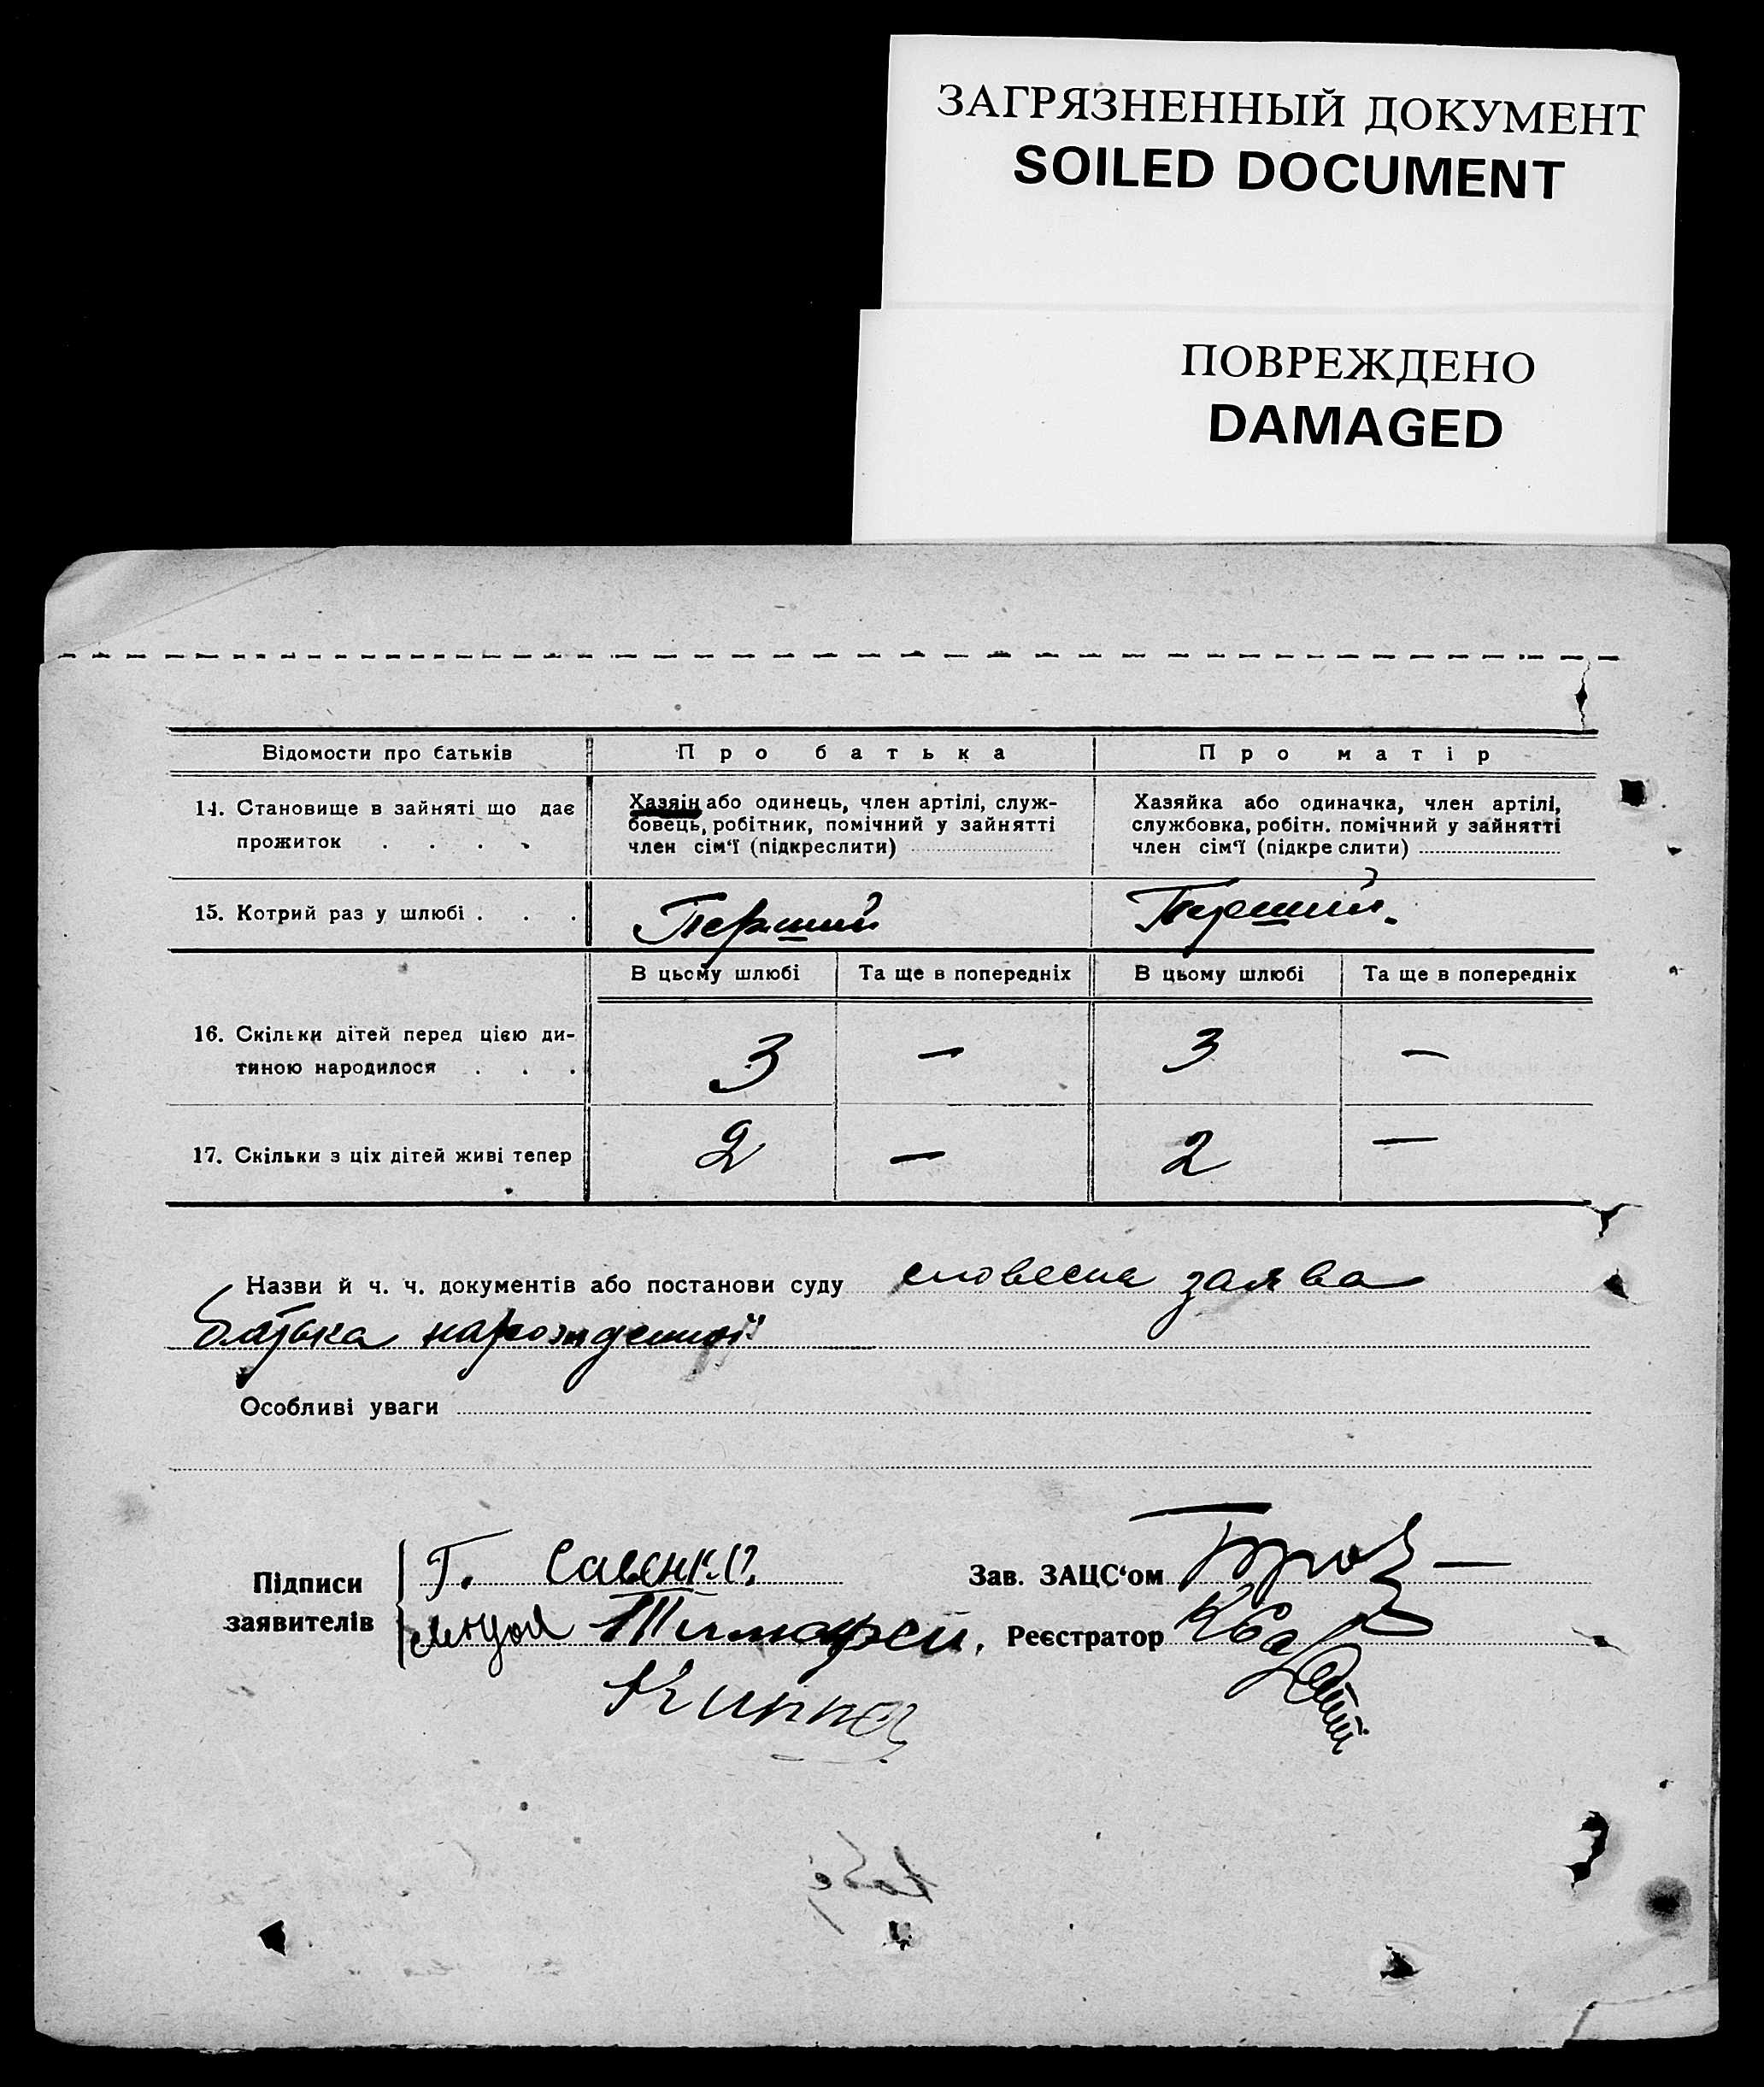 ЗАГРЯЗНЕННЫЙ ДОКУМЕНТ
SOILED DOCUMENT
ПОВРЕЖДЕНО
DAMAGED
Відомости про батьків
Про батька
Про матір
14. Становище в зайняті що дає
прожиток . . . .
Хазяін або одинець, член артілі, служ-
бовець, робітник, помічний у зайнятті
член сім'ї (підкреслити)
Хазяйка або одиначка, член артілі,
службовка, робітн. помічний у зайнятті
член сім'ї (підкреслити)
15. Котрий раз у шлюбі . . .
Перший
Перший.
В цьому шлюбі
Та ще в попередніх
В цьому шлюбі
Та ще в попередніх
16. Скільки дітей перед цією ди-
тиною народилося . . .
3 — 3 —
17. Скільки з ціх дітей живі тепер
2 — 2 —
Назви й ч. ч. документів або постанови суду словесна заява
батька нарожденної
Особливі уваги
Підписи
заявителів
Г. Савенко.
Тимофей.
Зав. ЗАЦС'ом
Реєстратор